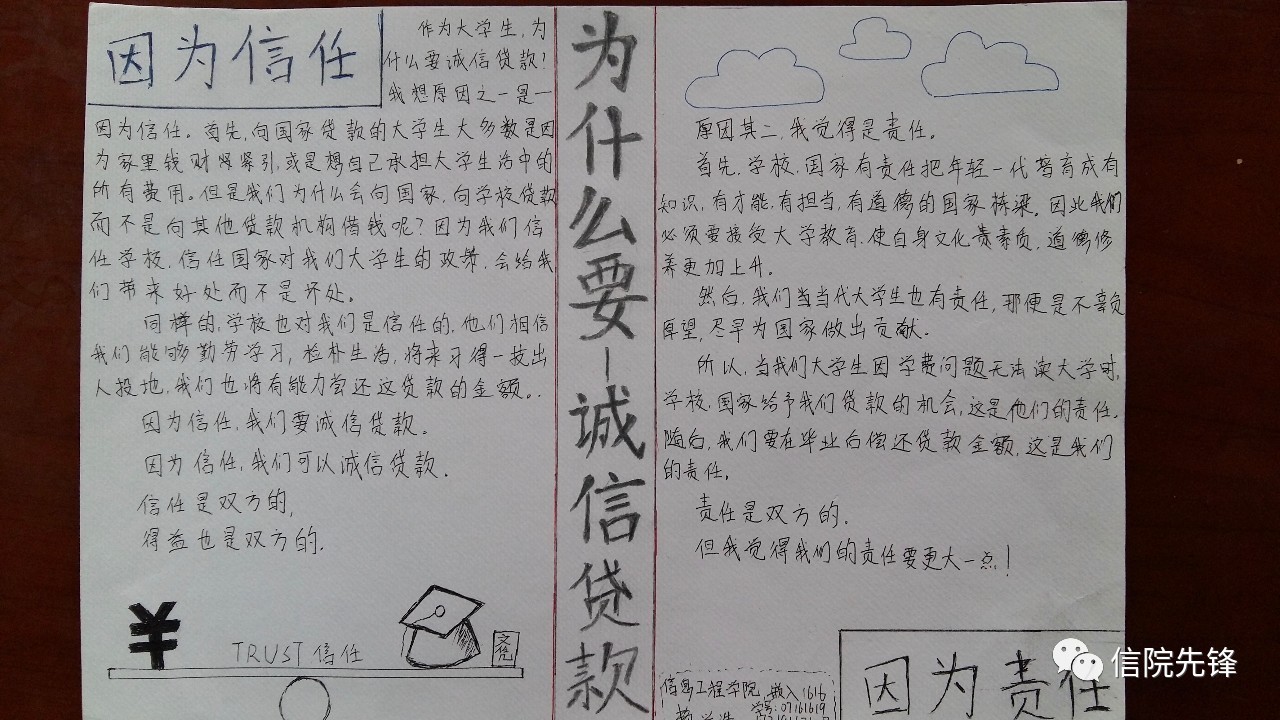 因为信任
作为大学生,为
什么要诚信贷款?
我想原因之一是一
因为信任。首先,向国家贷款的大学生大多数是因
为家里钱财紧引,或是想自己承担大学生活中的
所有费用。但是我们为什么会向国家、向学校贷款
而不是向其他贷款机构借钱呢?因为我们信
任学校,信任国家对我们大学生的政策,会给我
们带来好处而不是坏处。
同样的,学校也对我们是信任的,他们相信
我们能够勤劳学习,检朴生活,将来习得一技出
人投地,我们也将有能力尝还这贷款的金额。.
因为信任,我们要诚信贷款。
因为信任,我们可以诚信贷款.
信任是双方的,
得益也是双方的.
¥ TRUST 信任
为什么要—诚信贷款
原因其二,我觉得是责任。
首先,学校、国家有责任把年轻一代培育成有
知识,有才能,有担当,有道德的国家栋梁。因此我们
必须要接受大学教育,使自身文化素质,道德修
养更加上升。
然后,我们当当代大学生也有责任,那便是不辜负
厚望,尽早为国家做出贡献.
所以,当我们大学生因学费问题无法读大学时,
学校、国家给予我们贷款的机会,这是他们的责任。
随后,我们要在毕业后偿还贷款金额,这是我们
的责任。
责任是双方的.
但我觉得我们的责任要更大一点!
信息工程学院 嵌入1616
学号:07161619
因为责任
信院先锋